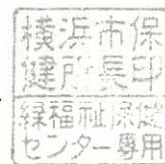 横浜市保
健所長印
緑福祉保健
センター専用